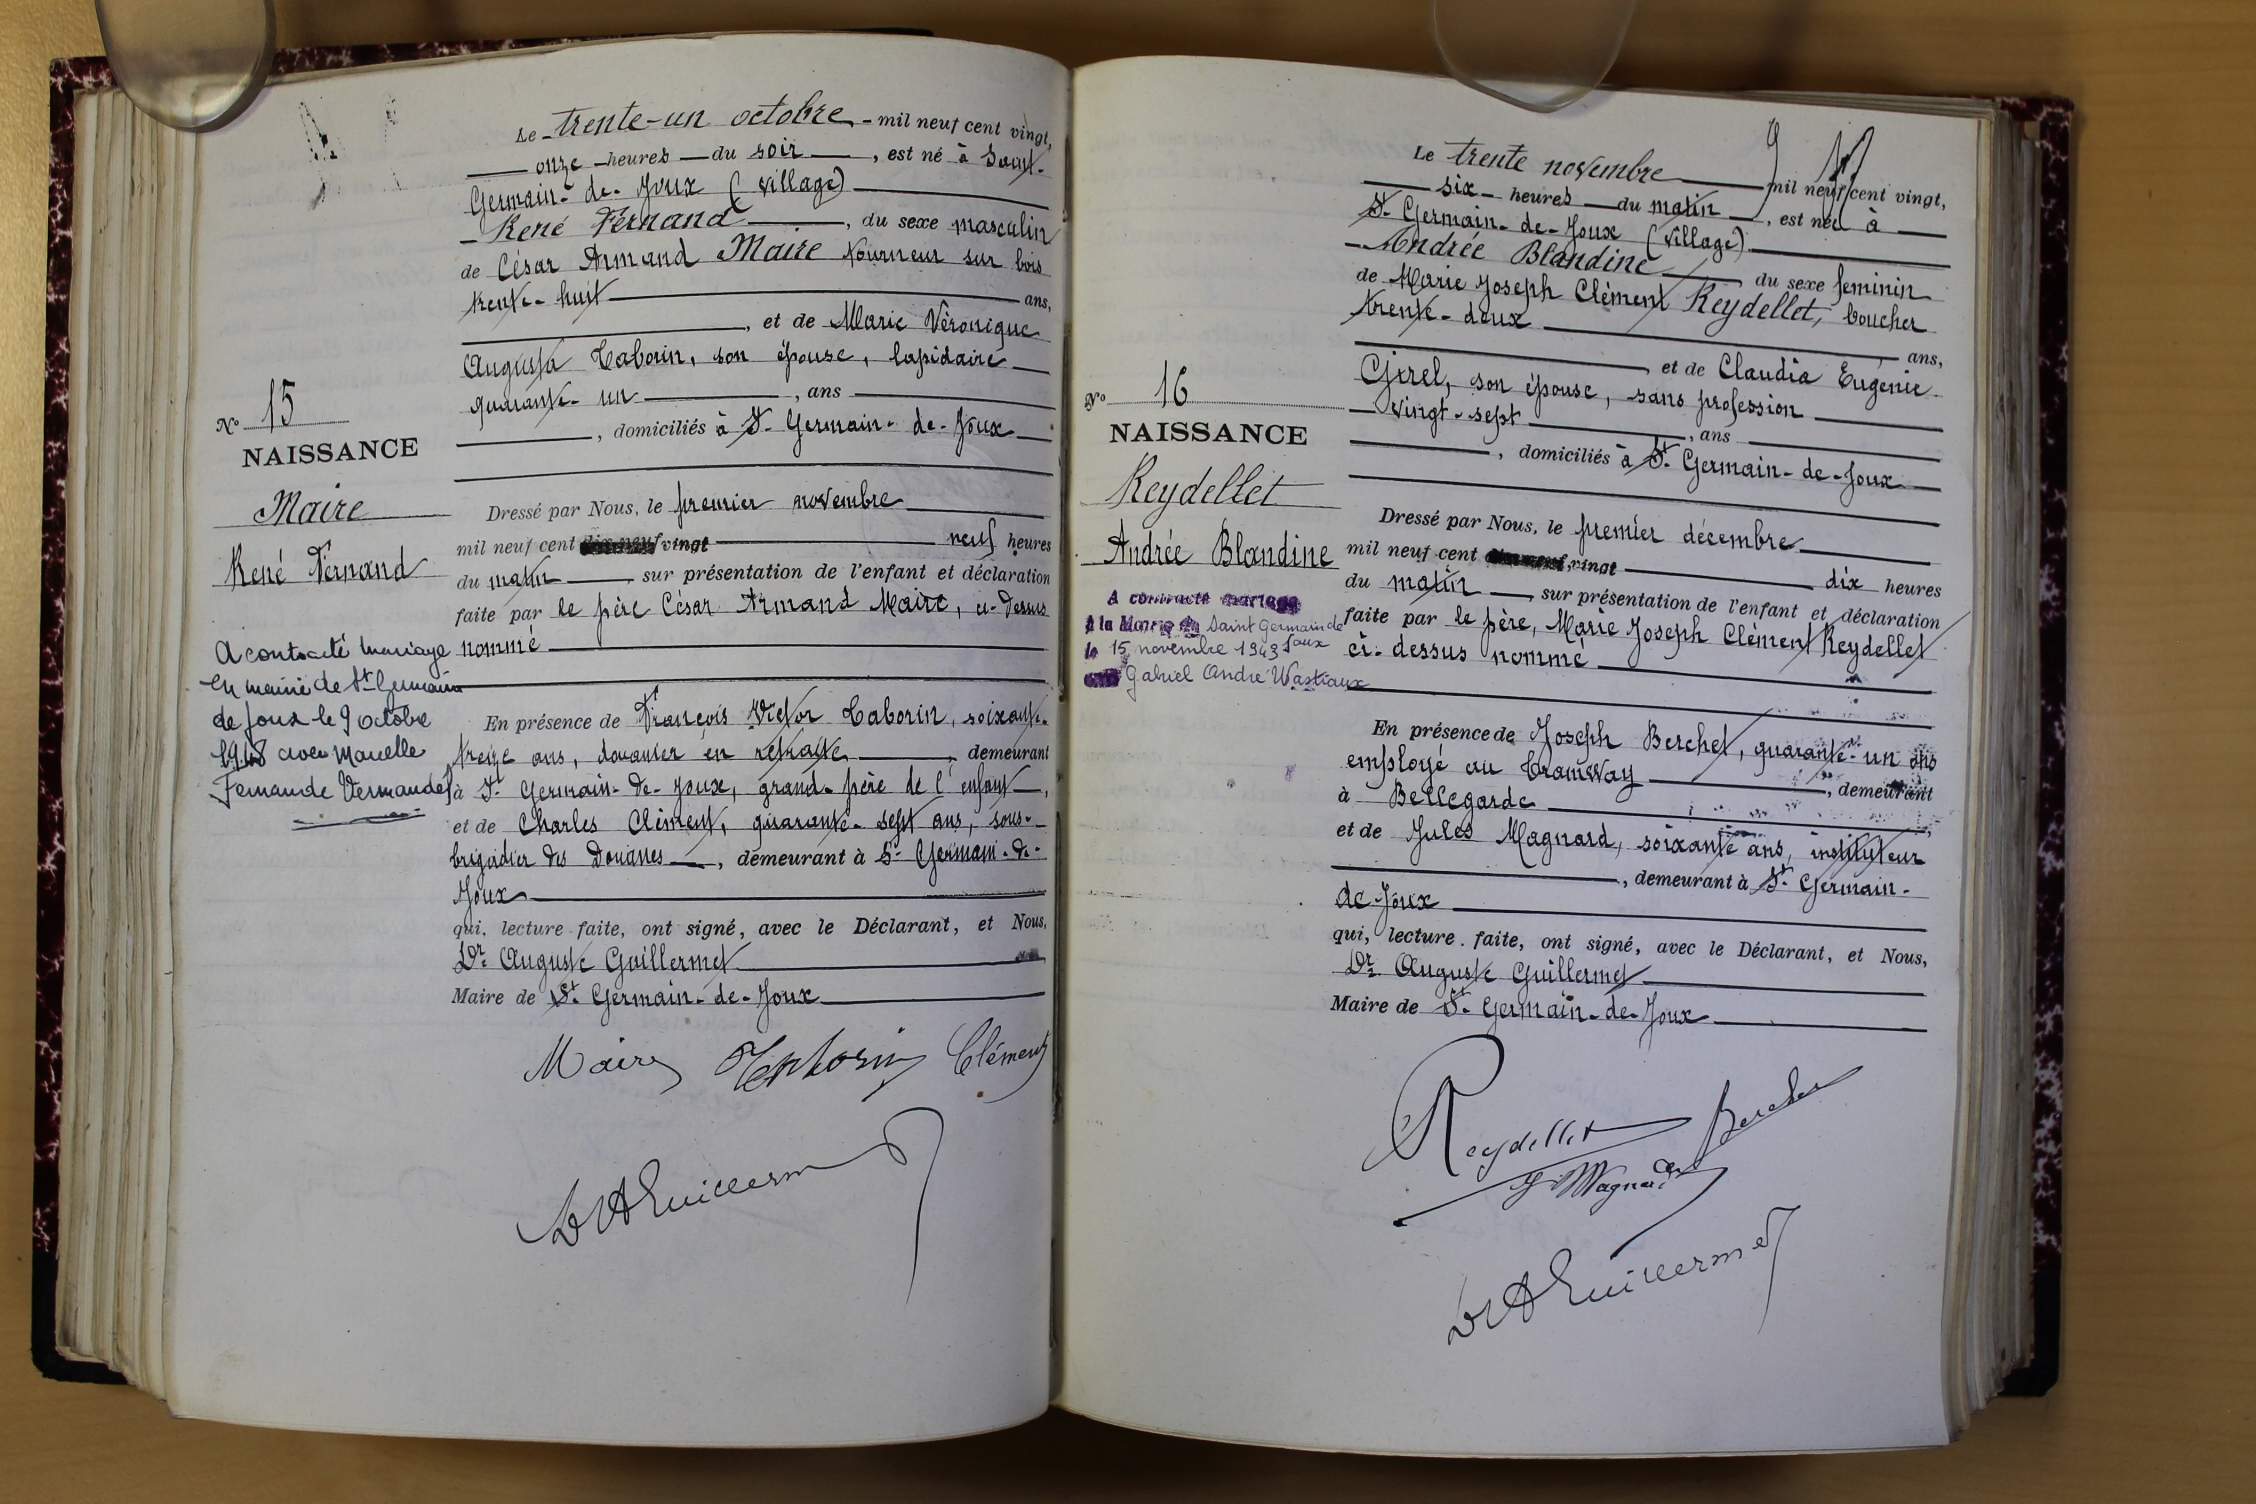 Le trente-un octobre mil neuf cent vingt,
onze heures du soir, est né à Saint-
Germain-de-Joux (village)
René Fernand, du sexe masculin
de César Armand Maire tourneur sur bois
trente-huit ans,
, et de Marie Véronique
Augusta Taborin, son épouse, lapidaire
quarante-un, ans
, domiciliés à St Germain-de-Joux
No 15
NAISSANCE
Maire
René Fernand
Dressé par Nous, le premier novembre
mil neuf cent dix-neuf vingt neuf heures
du matin sur présentation de l'enfant et déclaration
faite par le père César Armand Maire, ci-dessus
nommé
A contracté mariage
en mairie de St Germain
de Joux le 9 octobre
1948 avec Marcelle
Fernande Vermandel
En présence de François Victor Taborin, soixante-
treize ans, douanier en retraite, demeurant
à St Germain-de-Joux, grand-père de l'enfant,
et de Charles Clément, quarante-sept ans, sous-
brigadier des Douanes, demeurant à St Germain-de-
Joux
qui, lecture faite, ont signé, avec le Déclarant, et Nous,
Dr Auguste Guillermet
Maire de St Germain-de-Joux
Maire Taborin Clément
Dr A Guillermet
Le trente novembre mil neuf cent vingt,
six heures du matin, est née à
St Germain-de-Joux (village)
Andrée Blandine du sexe feminin
de Marie Joseph Clément Reydellet, boucher
trente-deux ans,
et de Claudia Eugénie
Girel, son épouse, sans profession
vingt-sept, ans
, domiciliés à St Germain-de-Joux
No 16
NAISSANCE
Reydellet
Andrée Blandine
Dressé par Nous, le premier décembre
mil neuf cent vingt dix heures
du matin sur présentation de l'enfant et déclaration
faite par le père, Marie Joseph Clément Reydellet
ci-dessus nommé
A contracté mariage
à la Mairie de Saint Germain de
Joux
le 15 novembre 1943
Gabriel André Wastiaux
En présence de Joseph Berchet, quarante-un ans
employé au tramway, demeurant
à Bellegarde
et de Jules Magnard, soixante ans, instituteur
, demeurant à St Germain-
de-Joux
qui, lecture faite, ont signé, avec le Déclarant, et Nous,
Dr Auguste Guillermet
Maire de St Germain-de-Joux
Reydellet Berchet
J Magnard
Dr A Guillermet